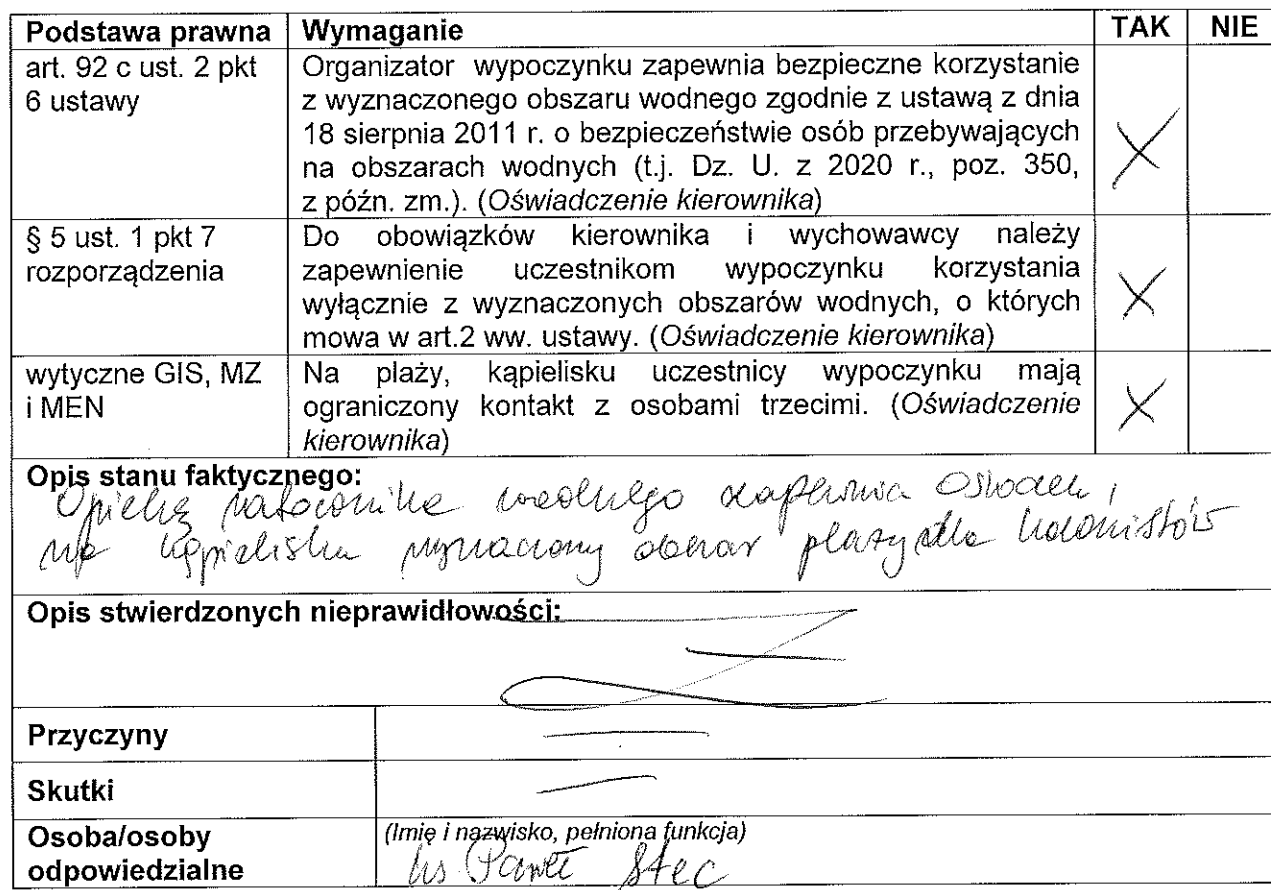 Podstawa prawna Wymaganie TAK NIE
art. 92 c ust. 2 pkt
6 ustawy
Organizator wypoczynku zapewnia bezpieczne korzystanie
z wyznaczonego obszaru wodnego zgodnie z ustawą z dnia
18 sierpnia 2011 r. o bezpieczeństwie osób przebywających
na obszarach wodnych (t.j. Dz. U. z 2020 r., poz. 350,
z późn. zm.). (Oświadczenie kierownika)
§ 5 ust. 1 pkt 7
rozporządzenia
Do obowiązków kierownika i wychowawcy należy
zapewnienie uczestnikom wypoczynku korzystania
wyłącznie z wyznaczonych obszarów wodnych, o których
mowa w art.2 ww. ustawy. (Oświadczenie kierownika)
wytyczne GIS, MZ
i MEN
Na plaży, kąpielisku uczestnicy wypoczynku mają
ograniczony kontakt z osobami trzecimi. (Oświadczenie
kierownika)
Opis stanu faktycznego:
Opiekę ratownika wodnego zapewnia Ośrodek,
na kąpielisku wyznaczony obszar plaży dla kolonistów
Opis stwierdzonych nieprawidłowości:
Przyczyny
Skutki
Osoba/osoby
odpowiedzialne
(Imię i nazwisko, pełniona funkcja)
ks Paweł Stec